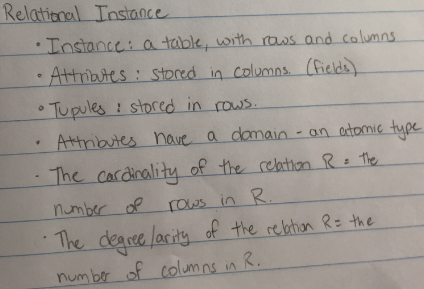 Relational Instance
• Instance: a table, with rows and columns
• Attributes: stored in columns. (fields)
• Tupules: stored in rows.
• Attributes have a domain - an atomic type
• The cardinality of the relation R = the
number of rows in R.
• The degree/arity of the relation R = the
number of columns in R.